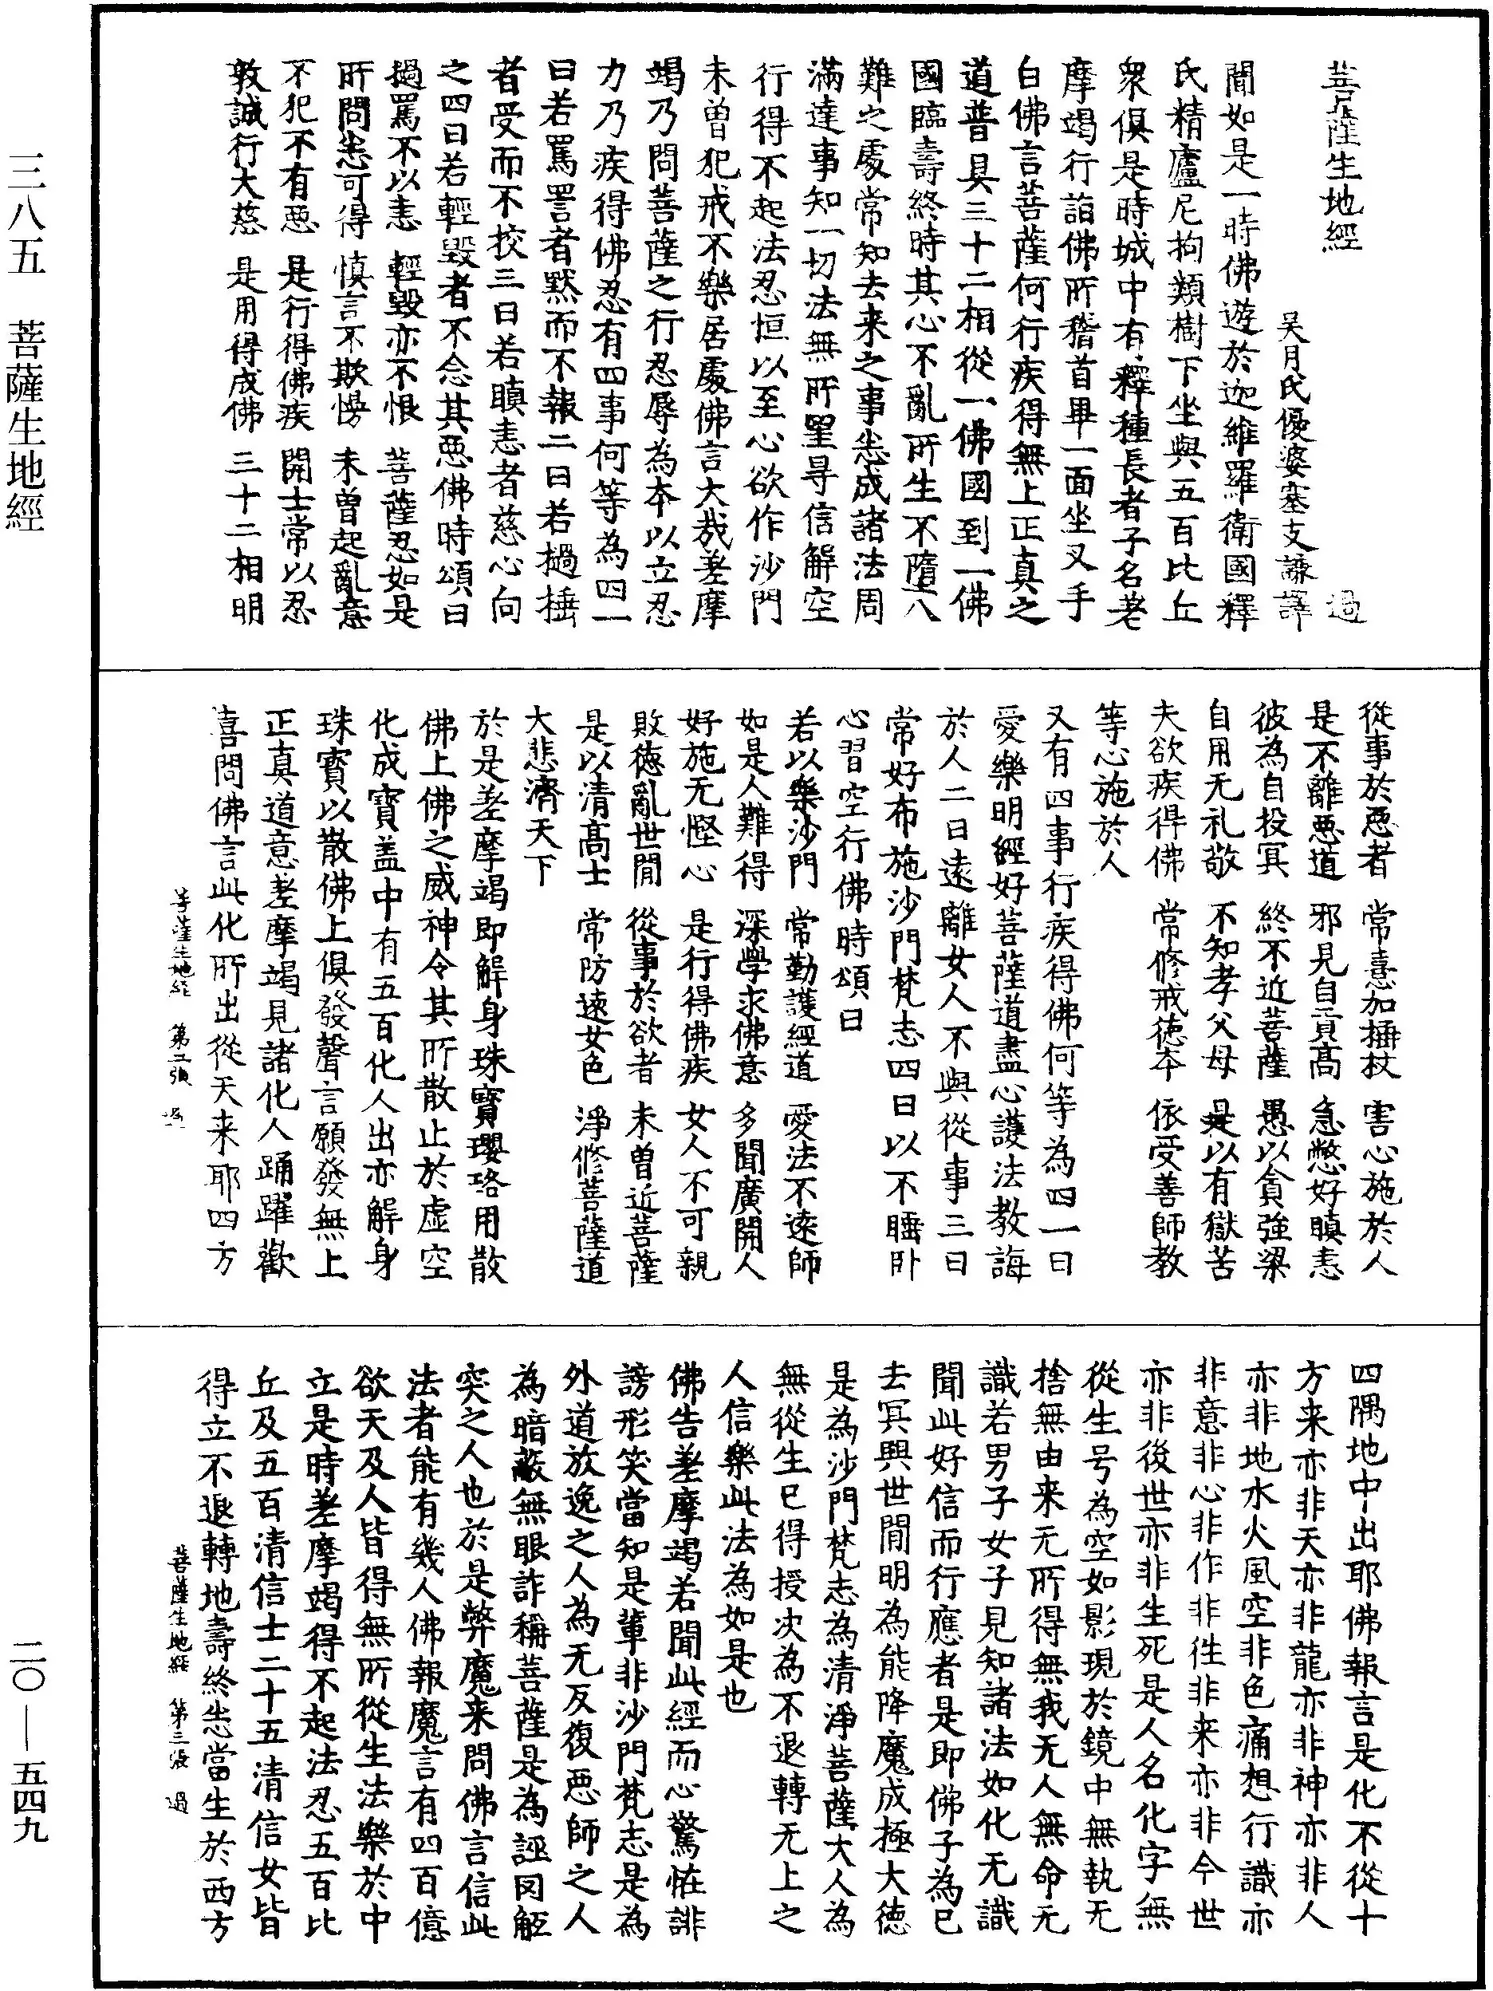 菩薩生地經　過
吳月氏優婆塞支謙譯
聞如是一時佛遊於迦維羅衛國釋
氏精廬尼拘類樹下坐與五百比丘
衆俱是時城中有釋種長者子名差
摩竭行詣佛所稽首畢一面坐叉手
白佛言菩薩何行疾得無上正真之
道普具三十二相從一佛國到一佛
國臨壽終時其心不亂所生不墮八
難之處常知去来之事悉成諸法周
滿達事知一切法無所望尋信解空
行得不起法忍恒以至心欲作沙門
未曾犯戒不樂居處佛言大哉差摩
竭乃問菩薩之行忍辱為本以立忍
力乃疾得佛忍有四事何等為四一
曰若罵詈者默而不報二曰若撾捶
者受而不挍三曰若瞋恚者慈心向
之四曰若輕毀者不念其惡佛時頌曰
撾罵不以恚　輕毀亦不恨　菩薩忍如是
所問悉可得　慎言不欺慢　未曾起亂意
不犯不有惡　是行得佛疾　開士常以忍
敦誠行大慈　是用得成佛　三十二相明
從事於惡者　常憙加捶杖　害心施於人
是不離惡道　邪見自貢高　急憋好瞋恚
彼為自投冥　終不近菩薩　愚以貪強梁
自用无礼敬　不知孝父母　是以有獄苦
夫欲疾得佛　常修戒德本　依受善師教
等心施於人
又有四事行疾得佛何等為四一曰
愛樂明經好菩薩道盡心護法教誨
於人二曰遠離女人不與從事三曰
常好布施沙門梵志四曰以不睡卧
心習空行佛時頌曰
若以樂沙門　常勤護經道　愛法不遠師
如是人難得　深學求佛意　多聞廣開人
好施无慳心　是行得佛疾　女人不可親
敗德亂世間　從事於欲者　未曾近菩薩
是以清高士　常防遠女色　淨修菩薩道
大悲濟天下
於是差摩竭即解身珠寶瓔珞用散
佛上佛之威神令其所散止於虛空
化成寶盖中有五百化人出亦解身
珠寶以散佛上俱發聲言願發無上
正真道意差摩竭見諸化人踊躍歡
喜問佛言此化所出從天来耶四方
菩薩生地經　第二張　過
四隅地中出耶佛報言是化不從十
方来亦非天亦非龍亦非神亦非人
亦非地水火風空非色痛想行識亦
非意非心非作非徃非来亦非今世
亦非後世亦非生死是人名化字無
從生号為空如影現於鏡中無執无
捨無由来无所得無我无人無命无
識若男子女子見知諸法如化无識
聞此好信而行應者是即佛子為已
去冥興世間明為能降魔成極大德
是為沙門梵志為清淨菩薩大人為
無從生已得授次為不退轉无上之
人信樂此法為如是也
佛告差摩竭若聞此經而心驚恠誹
謗形笑當知是輩非沙門梵志是為
外道放逸之人為无反復惡師之人
為暗蔽無眼詐稱菩薩是為誣罔觝
突之人也於是弊魔来問佛言信此
法者能有幾人佛報魔言有四百億
欲天及人皆得無所從生法樂於中
立是時差摩竭得不起法忍五百比
丘及五百清信士二十五清信女皆
得立不退轉地壽終悉當生於西方
菩薩生地經　第三張　過
三八五　菩薩生地經
二〇——五四九